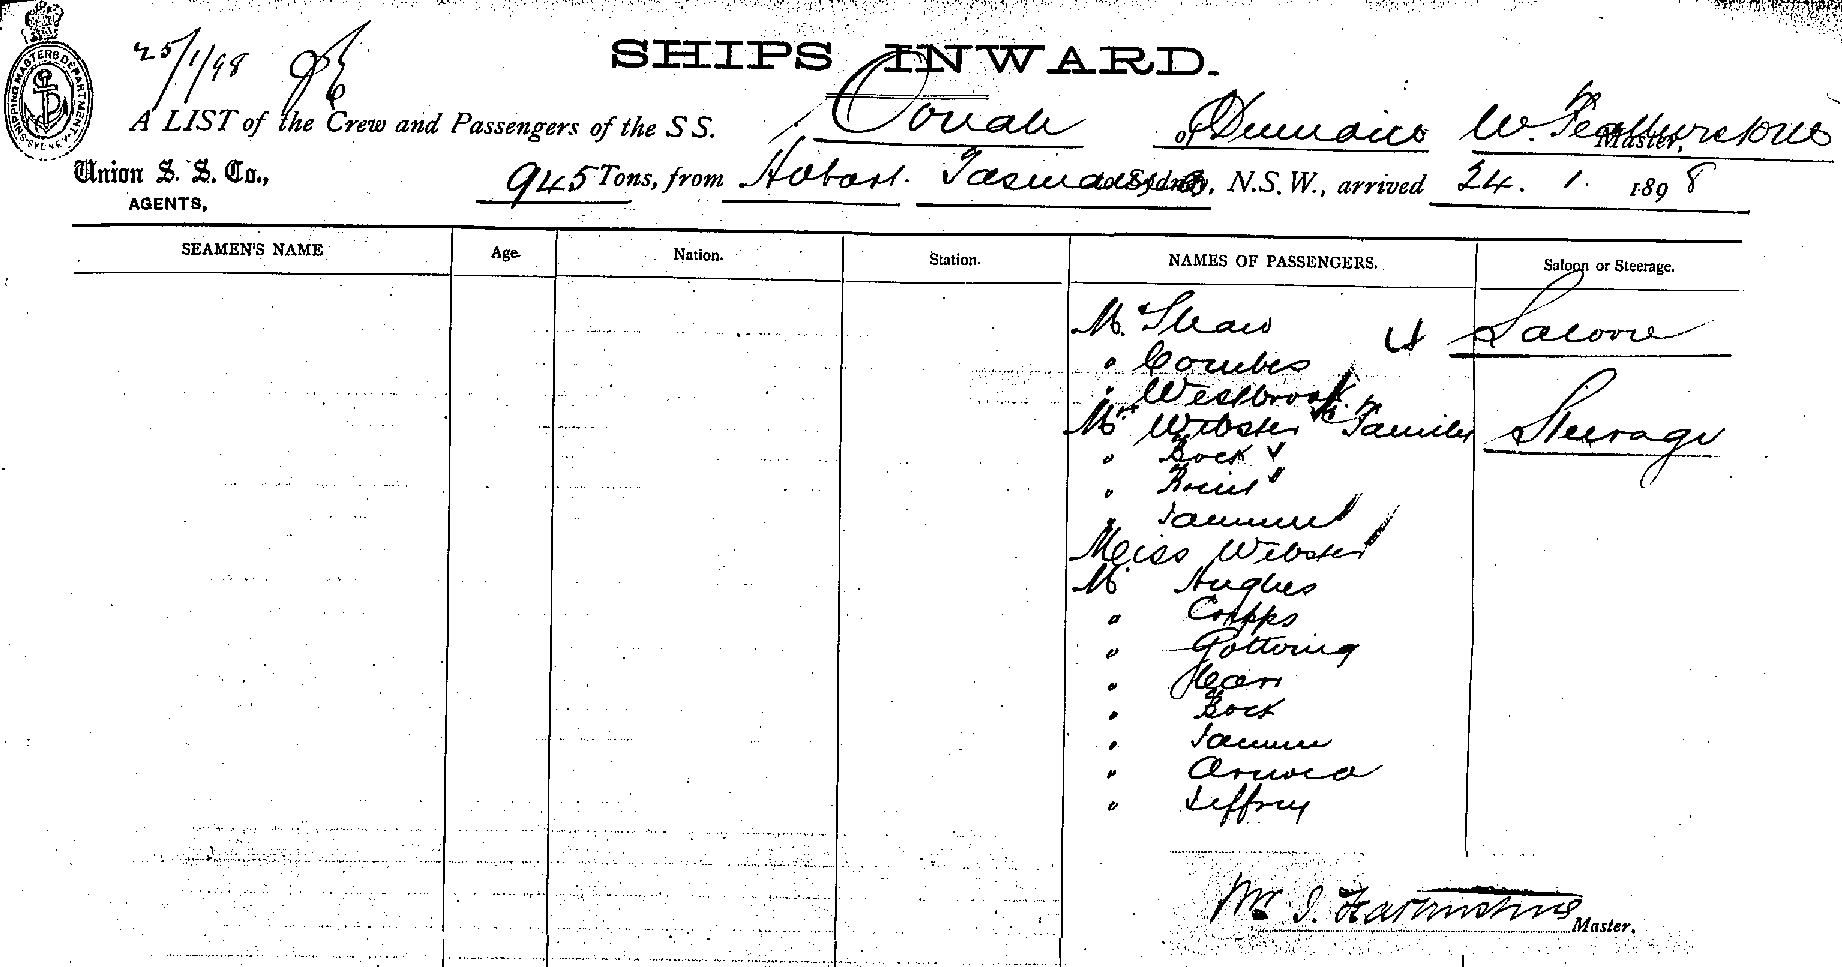 25/1/98
SHIPS INWARD.
A LIST of the Crew and Passengers of the S S. Oonah of Dunedin W. Featherstone Master,
Union S. S. Co., AGENTS,
945 Tons, from Hobart. Tasmania to Sydney, N.S.W., arrived 24. 1. 1898
SEAMEN'S NAME Age. Nation. Station. NAMES OF PASSENGERS. Saloon or Steerage.
Mr. Shaw 4 Saloon
" Combes
" Westbrook
Mrs Webster & Family Steerage
" Bock "
"
"
Miss Webster
Mr Hughes
" Cripps
"
"
" Bock
"
"
" Jeffrey
Wm J. Featherstone Master.